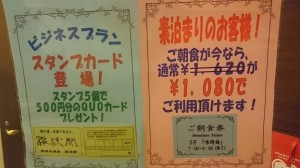 ビジネスプラン
スタンプカード
登場！
スタンプ5個で
500円分のQUOカード
プレゼント！
素泊まりのお客様！
ご朝食が今なら、
通常¥1,620が
¥1,080で
ご利用頂けます！
ご朝食券
Breakfast Ticket